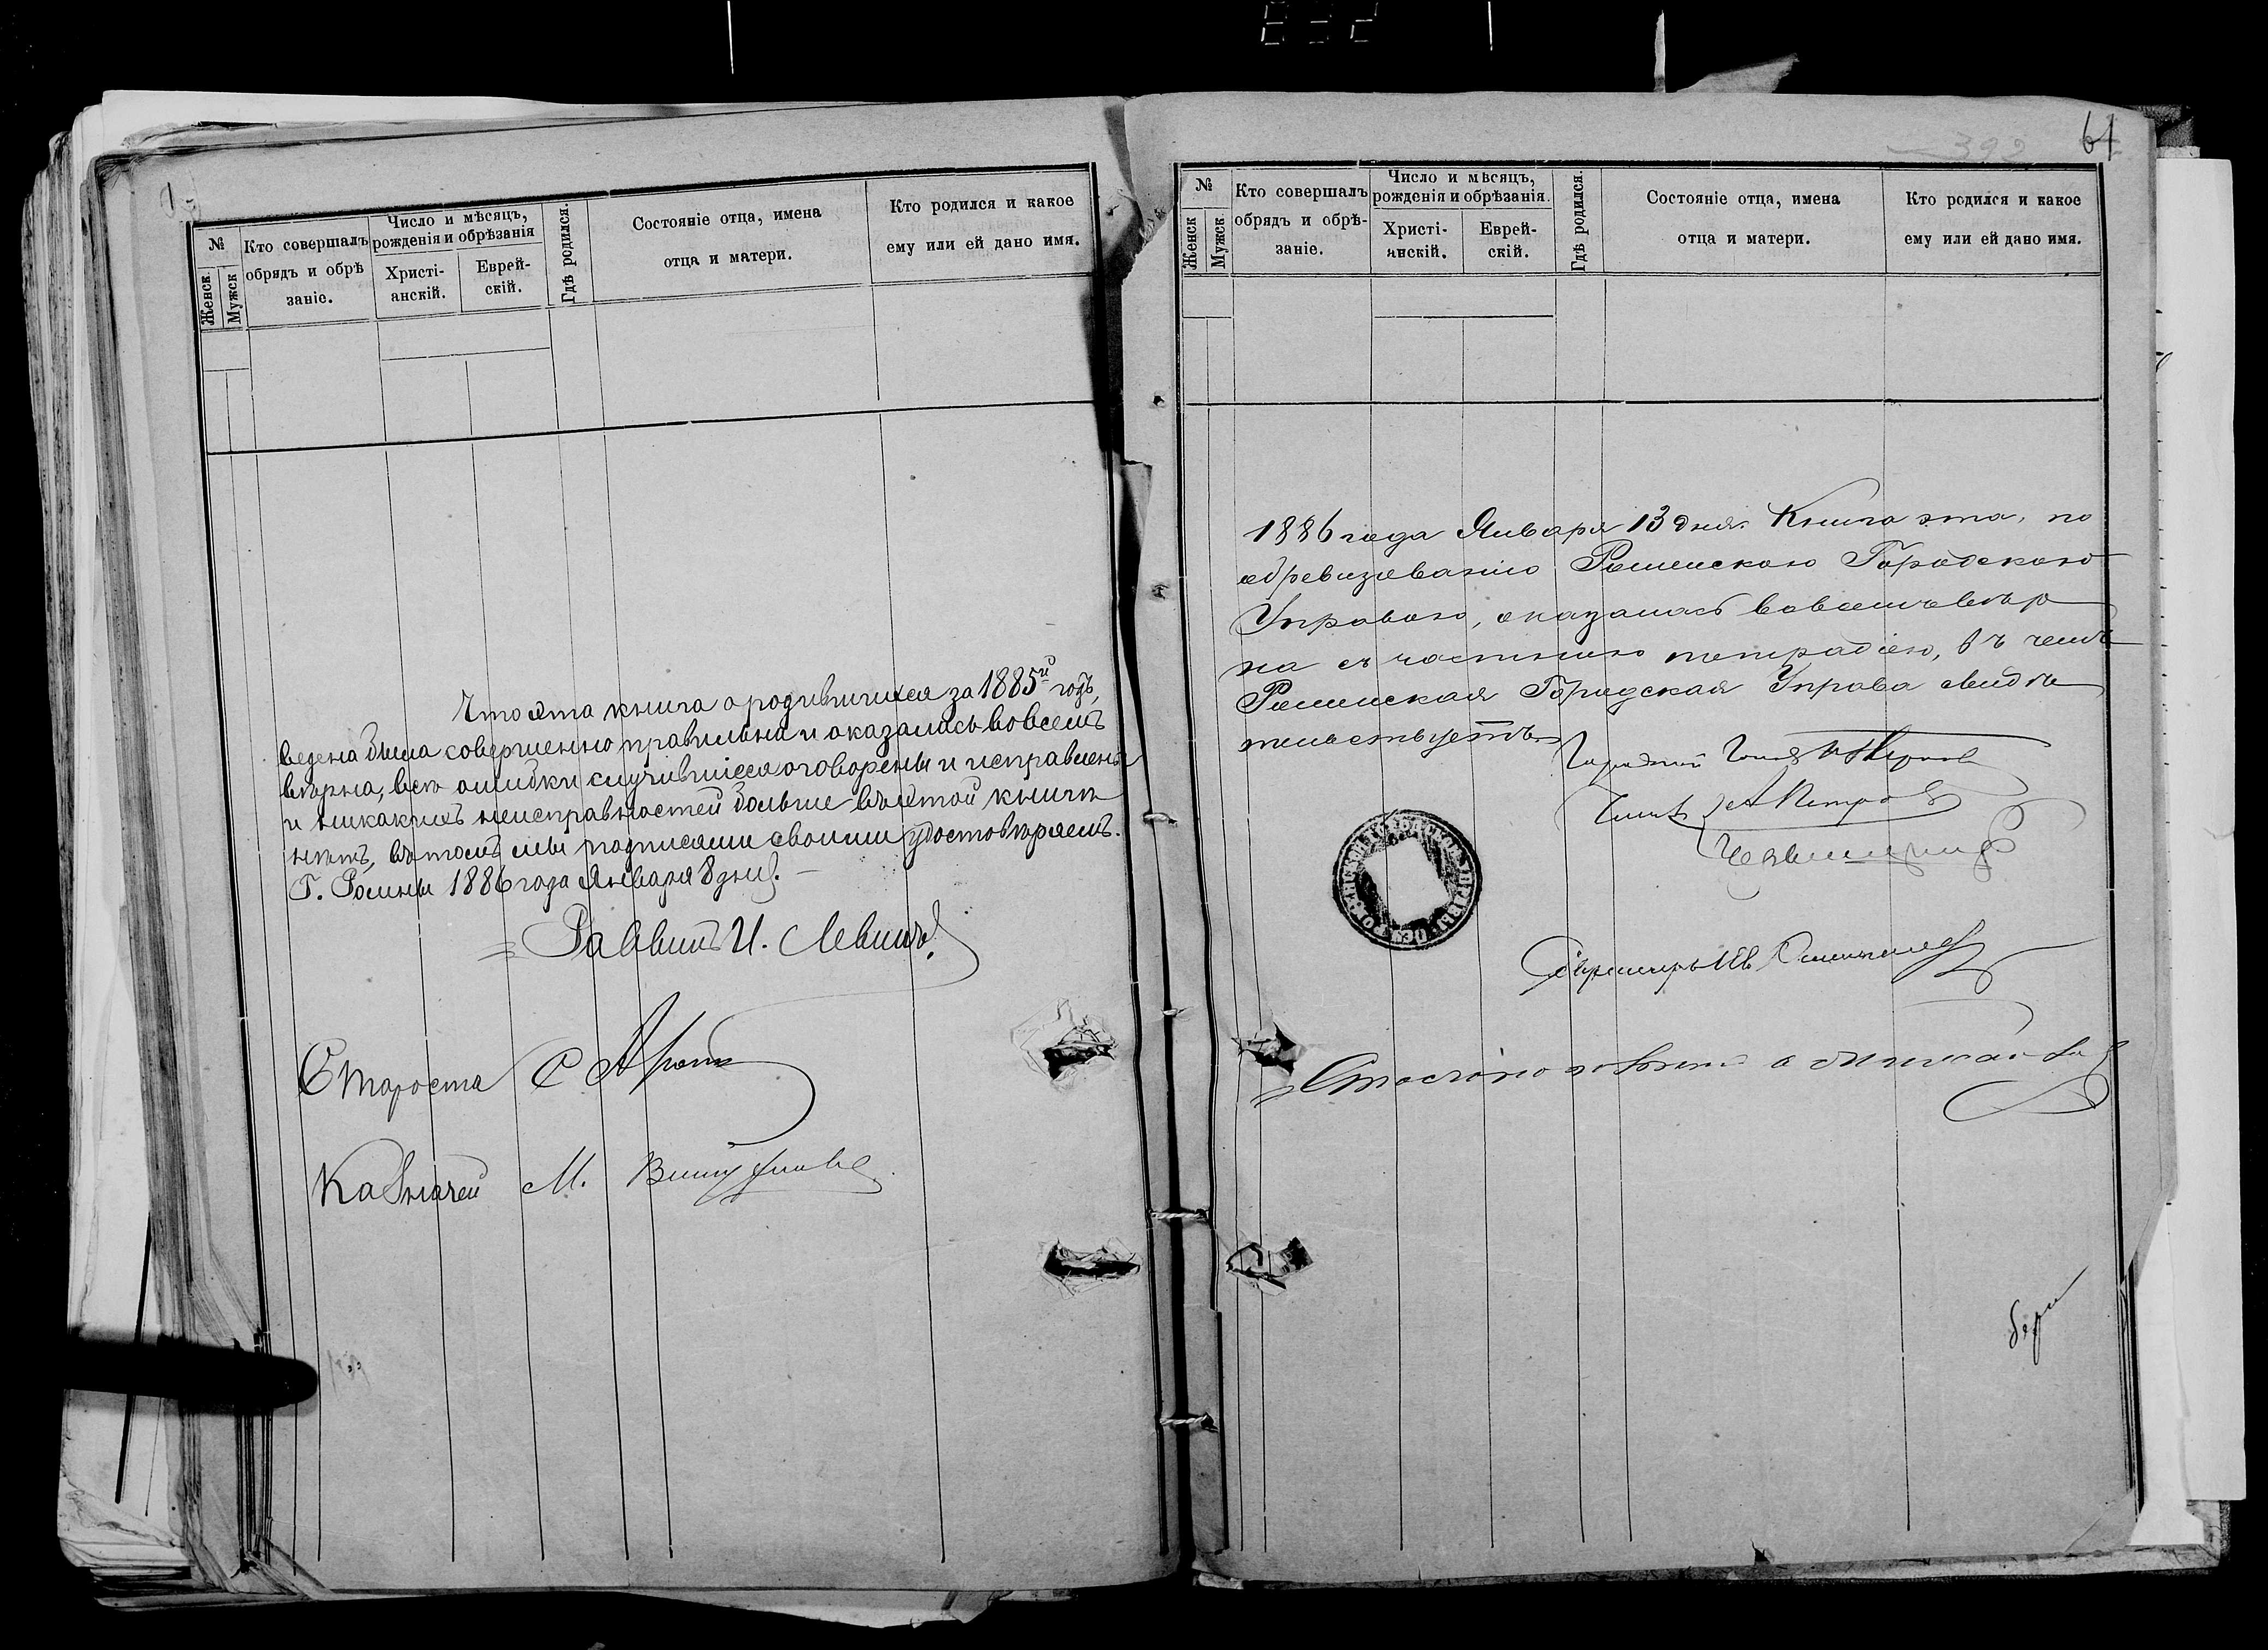 №
Женск.
Мужск
Кто совершалъ
обрядъ и обрѣ
заніе.
Число и мѣсяцъ,
рожденія и обрѣзанія
Христі-
анскій.
Еврей-
скій.
Гдѣ родился.
Состояніе отца, имена
отца и матери.
Кто родился и какое
ему или ей дано имя.
Что эта книга о родившихся за 1885й годъ,
ведена была совершенно правильна и оказалась во всемъ
вѣрна, всѣ ошибки случившіеся оговорены и исправлены
и никакихъ неисправностей больше въ этой книги
нѣтъ, въ томъ мы подписями своими удостовѣряемъ.
Г. Ромны 1886 года Января 8 дня. —
Раввинъ И. Левинъ
Староста С
Казначей М.
61
392
№
Женск
Мужск
Кто совершалъ
обрядъ и обрѣ-
заніе.
Число и мѣсяцъ,
рожденія и обрѣзанія.
Христі-
янскій.
Еврей-
скій.
Гдѣ родился.
Состояніе отца, имена
отца и матери.
Кто родился и какое
ему или ей дано имя.
1886 года Января 13 дня. Книга эта, по
обревизованію Роменскою Городскою
Управою, оказалась во всемъ вѣр
на съ частною тетрадію, въ чемъ
Роменская Городская Управа свидѣ
тельствуетъ
Городской Голова
Члены А Петров